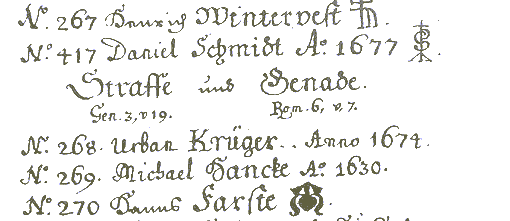 No. 267 Henrich Wintervest
No. 417 Daniel Schmidt Ao. 1677
Straffe und Genade.
Gen. 3, v 19. Rom. 6, v. 7.
No. 268. Urban Krüger.. Anno 1674.
No. 269. Michael Hancke Ao. 1630.
No. 270 Hanns Farste